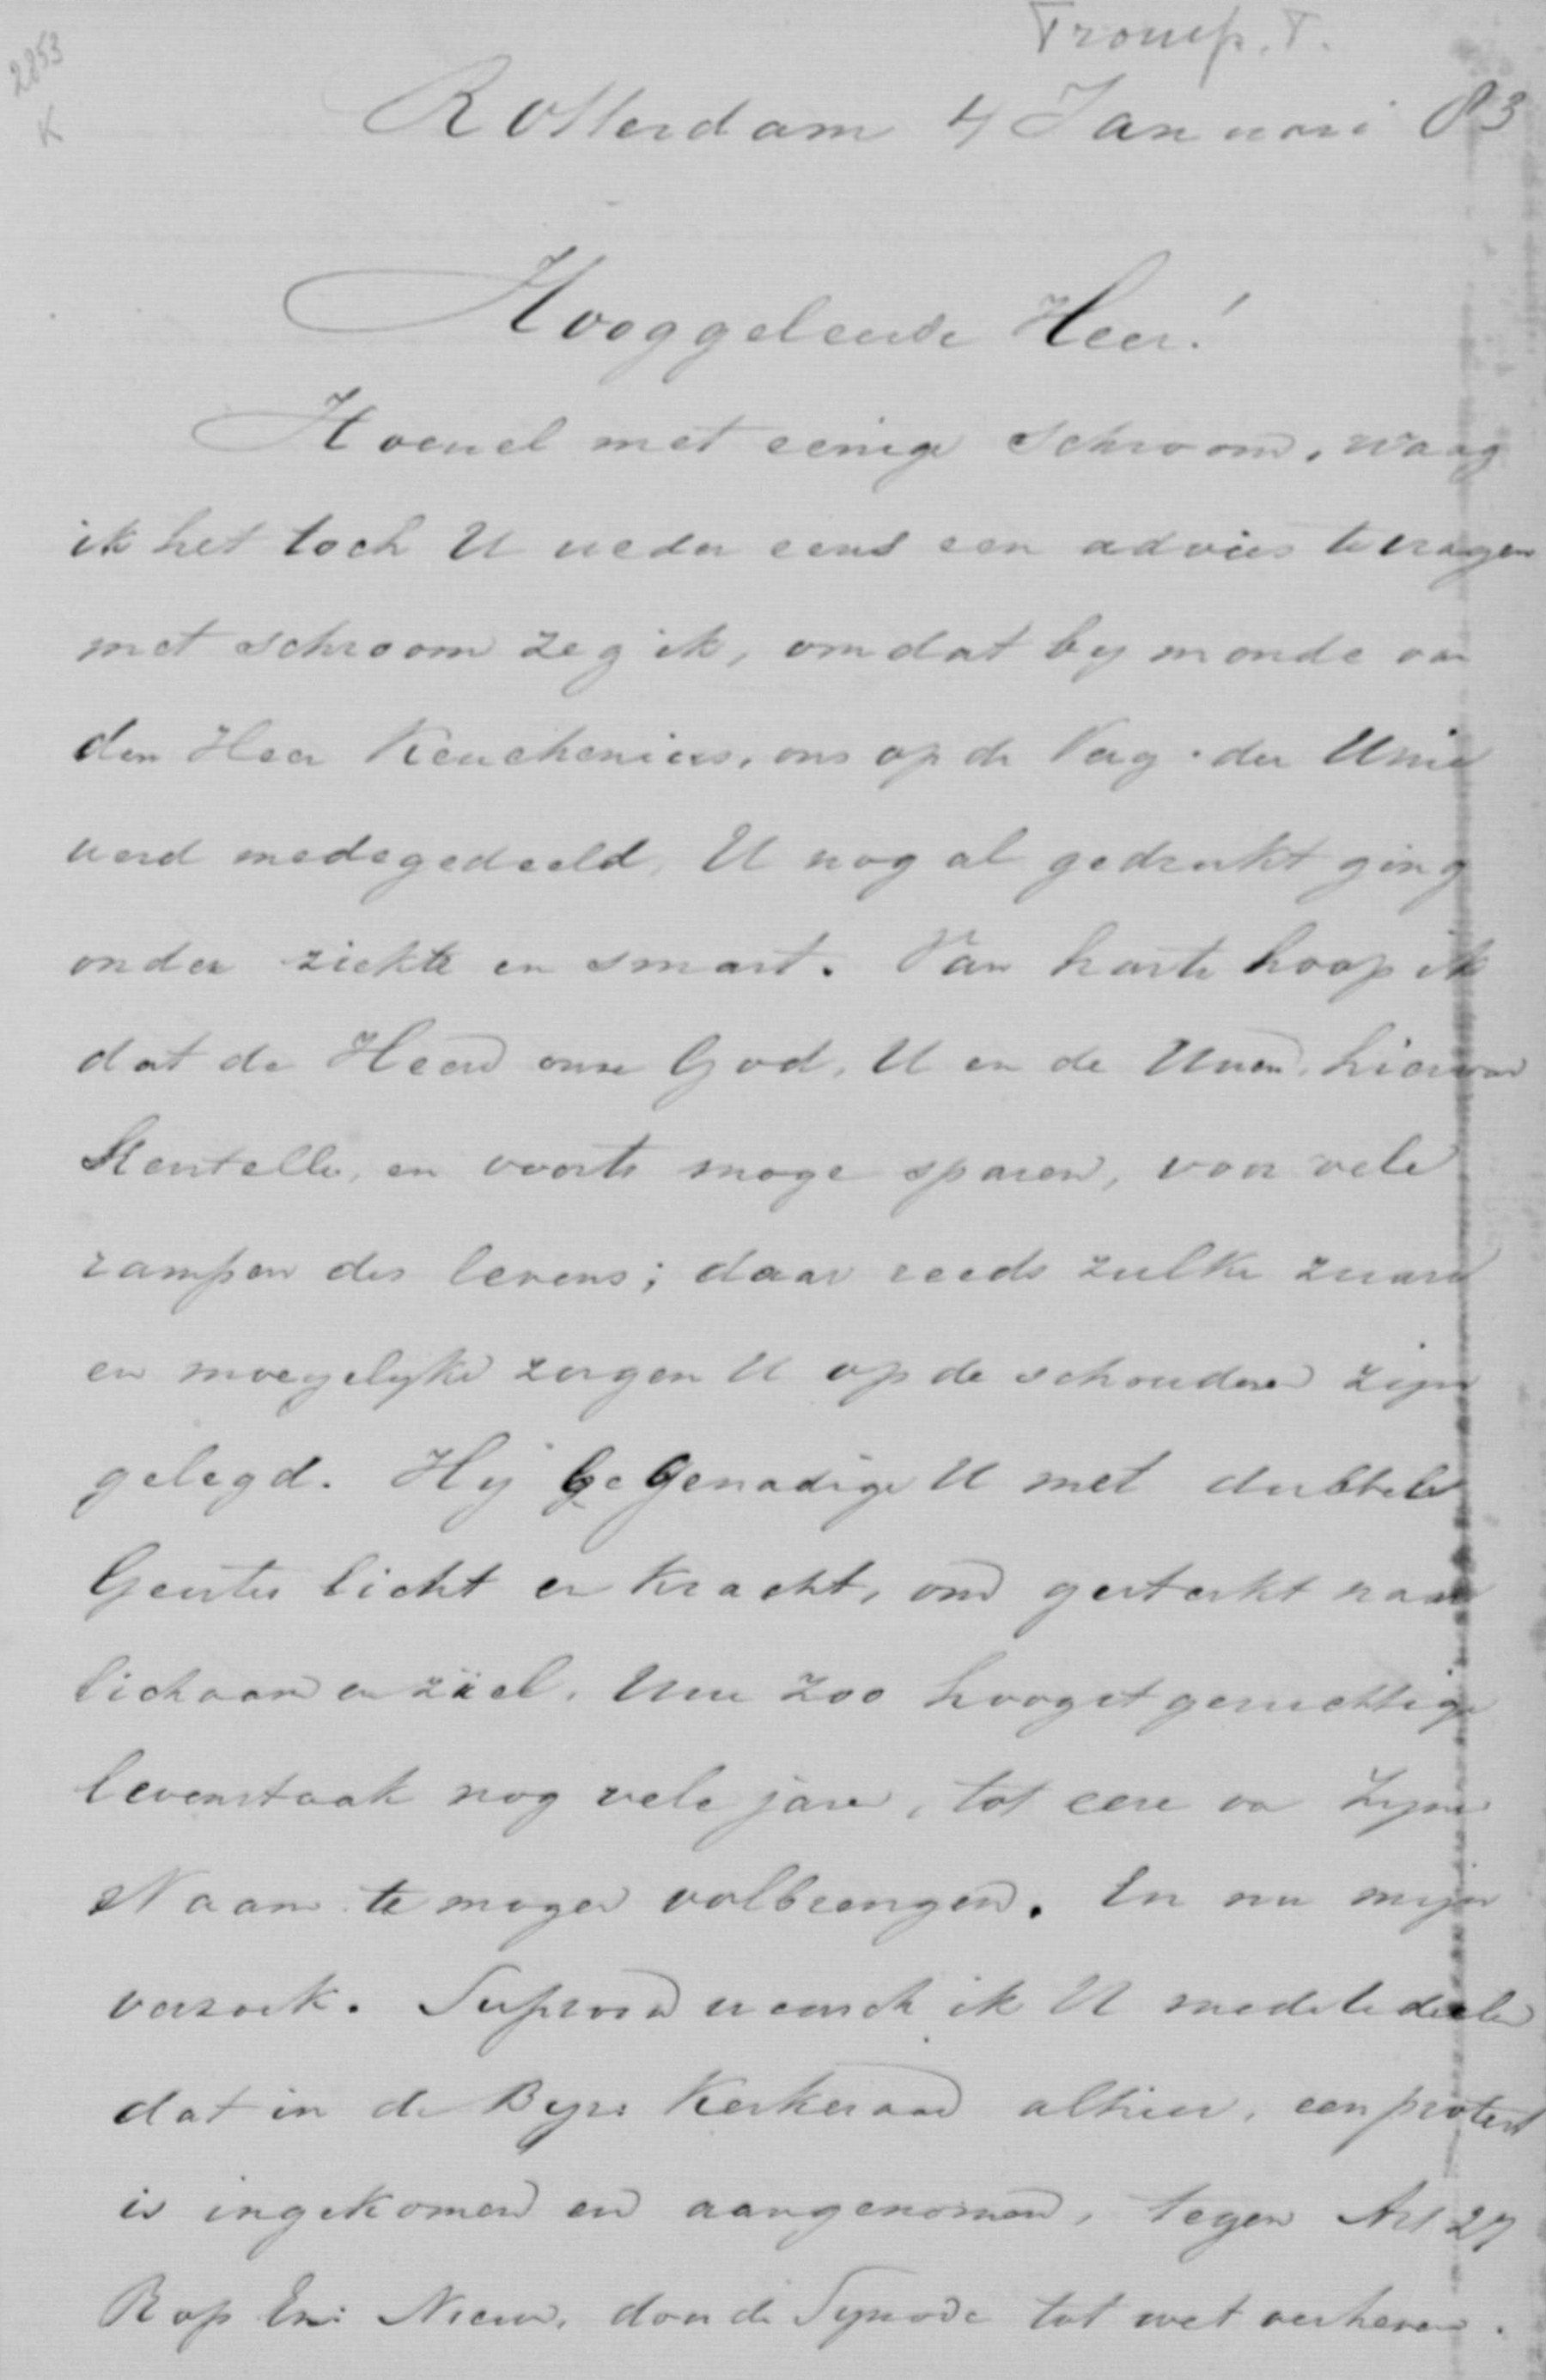 Tromp. T.
2853
K
Rotterdam 4 Januari 83
Hooggeleerde Heer!
Hoewel met eenige schroom, waag
ik het toch U weder eens een advies te vragen
met schroom zeg ik, omdat by monde van
den Heer Keuchenius, ons op de Verg. der Unie
werd medegedeeld, U nog al gedrukt ging
onder ziekte en smart. Van harte hoop ik
dat de Heer onze God, U en de Uwen, hiervan
herstelle, en voorts moge sparen, voor vele
rampen des levens; daar reeds zulke zware
en moeyelyke zorgen U op de schouderen zyn
gelegd. Hy begenadige U met dubbele
Geestes licht en kracht, om gesterkt naar
lichaam en ziel, Uwe zoo hoogst gewichtige
levenstaak nog vele jaren, tot eere van Zyne
Naam te mogen volbrengen. En nu myn
verzoek. wensch ik U mede te deelen
dat in de Byz: Kerkeraad alhier, een protest
is ingekomen en aangenomen, tegen Art 27
R op Ex: Nieuw, door de Synode tot wet verheven.